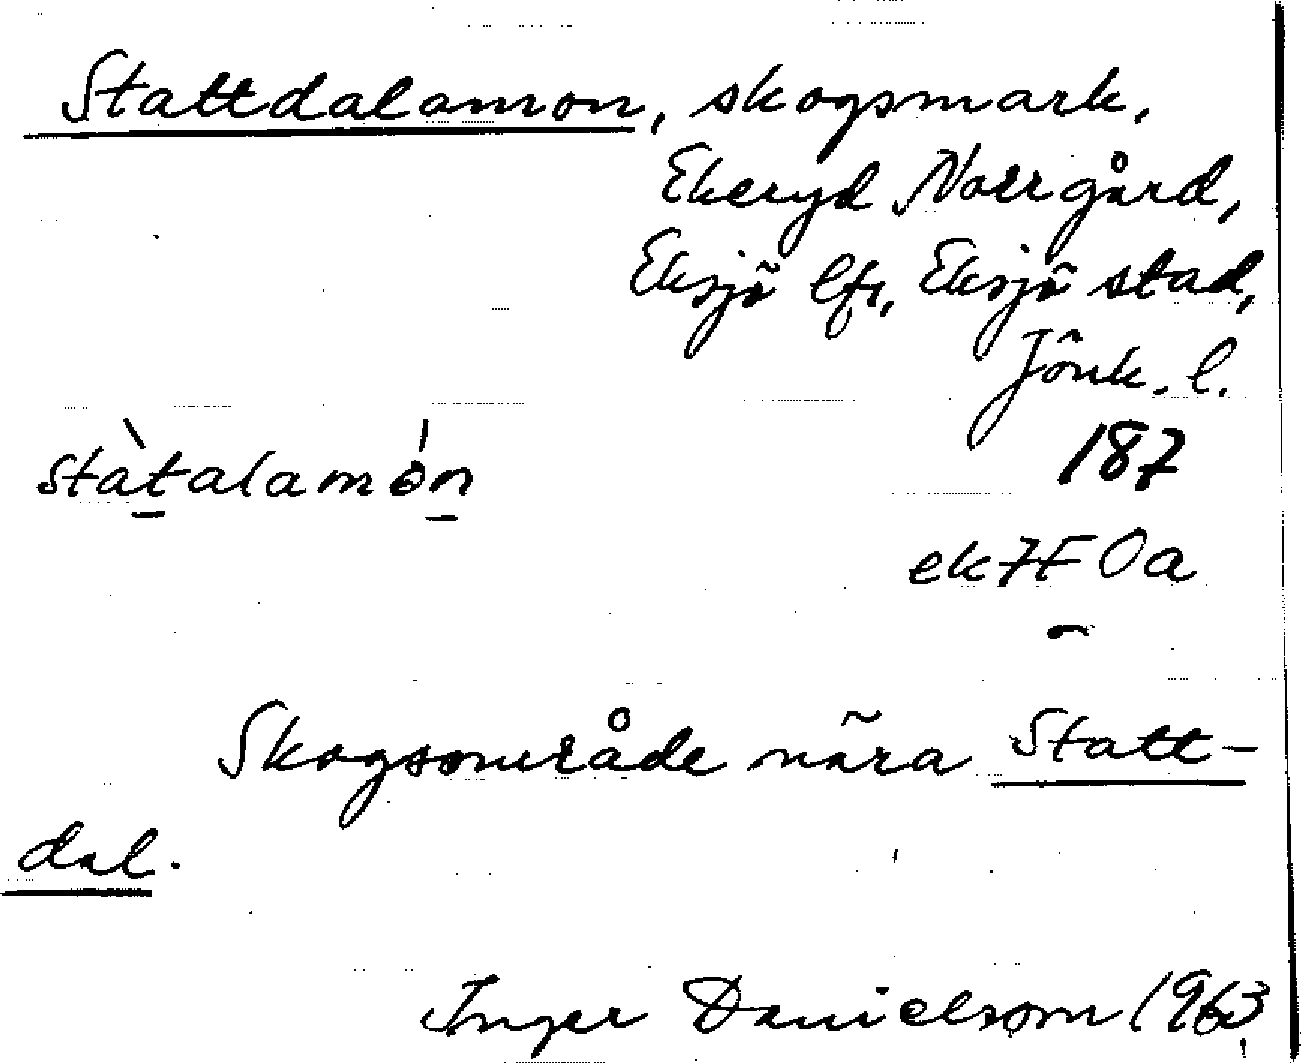 Stattdalamon, skogsmark.
Ekeryd Norrgård,
Eksjö lfs, Eksjö stad,
Jönk. l.
stàtalamón
187
ek7F0a
Skogsområde nära Statt-
dal.
Inger Danielsson 1963